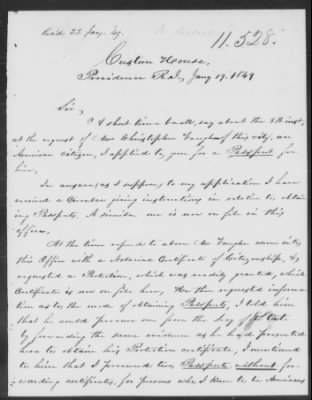 Rec'd 22 Jany. Ey.
11.528.
Custom House,
Providence R.I. Jany 19. 1849
Sir,
A short time back, say about the 8th inst,
at the request of Mr Christophen Vaughn of this city, an
American citizen, I applied to you for a Passport for
him,
In answer (as I suppose) to my application I have
received a Circular giving instructions in relation to obtain-
ing Passports. A similar one is now on file in this
office.
At the time refered to above Mr Vaughn came into
this Office with a Notarial Certificate of Citizenship, &
requested a Protection, which was readily granted, which
Certificate is now on file here, He then requested informa-
tion as to the mode of obtaining Passports, I told him
that he could procure one from the Secy of State
by forwarding the same evidence as he had presented
here to obtain his Protection certificate, I mentioned
to him that I procured two Passports without for-
warding certificates, for persons who I knew to be Americans